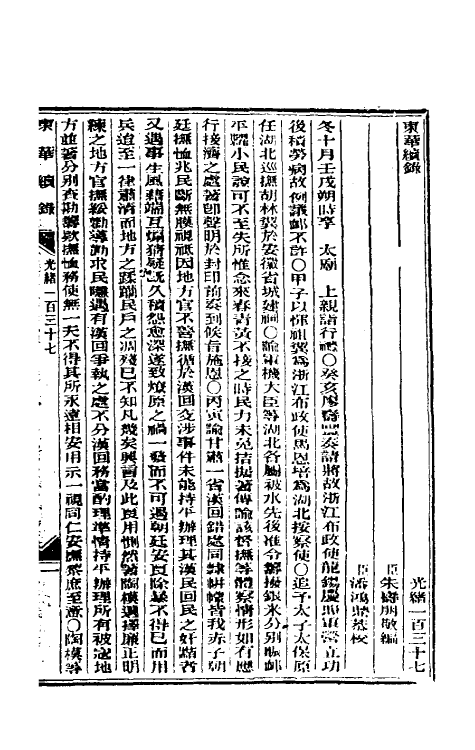 東華續錄　光緒一百三十七
臣朱壽朋敬編
臣潘鴻鼎恭校
冬十月壬戌朔時享　太廟　上親詣行禮〇癸亥廖壽豐奏請將故浙江布政使龍錫慶照軍營立功
後積勞病故例議卹不許〇甲子以惲祖翼爲浙江布政使馬恩培爲湖北按察使〇追予太子太保原
任湖北巡撫胡林翼於安徽省城建祠〇諭軍機大臣等湖北各屬被水先後准令籌撥銀米分別賑卹
平糶小民諒可不至失所惟念來春青黃不接之時民力未免拮据著傳諭該督撫等體察情形如有應
行接濟之處著卽聲明於封印前奏到候旨施恩〇丙寅諭甘肅一省漢回錯處同隸帡幪皆我赤子朝
廷撫恤兆民斷無膜視祇因地方官不善撫循於漢回交涉事件未能持平辦理其漢民回民之奸黠者
又遇事生風藉端互煽猜疑旣久積怨愈深遂致燎原之禍一發而不可遏朝廷安良除暴不得已而用
兵迨至一律肅清而地方之蹂躪民戶之凋殘已不知凡幾矣興言及此良用惻然著陶模選擇廉正明
練之地方官撫綏勸導勤求民曈遇有漢回爭執之處不分漢回務當酌理準情持平辦理所有被寇地
方並著分別查勘籌款撫恤務使無一夫不得其所永遠相安用示一視同仁安撫黎庶至意〇陶模等
東華續錄　光緒一百三十七　一